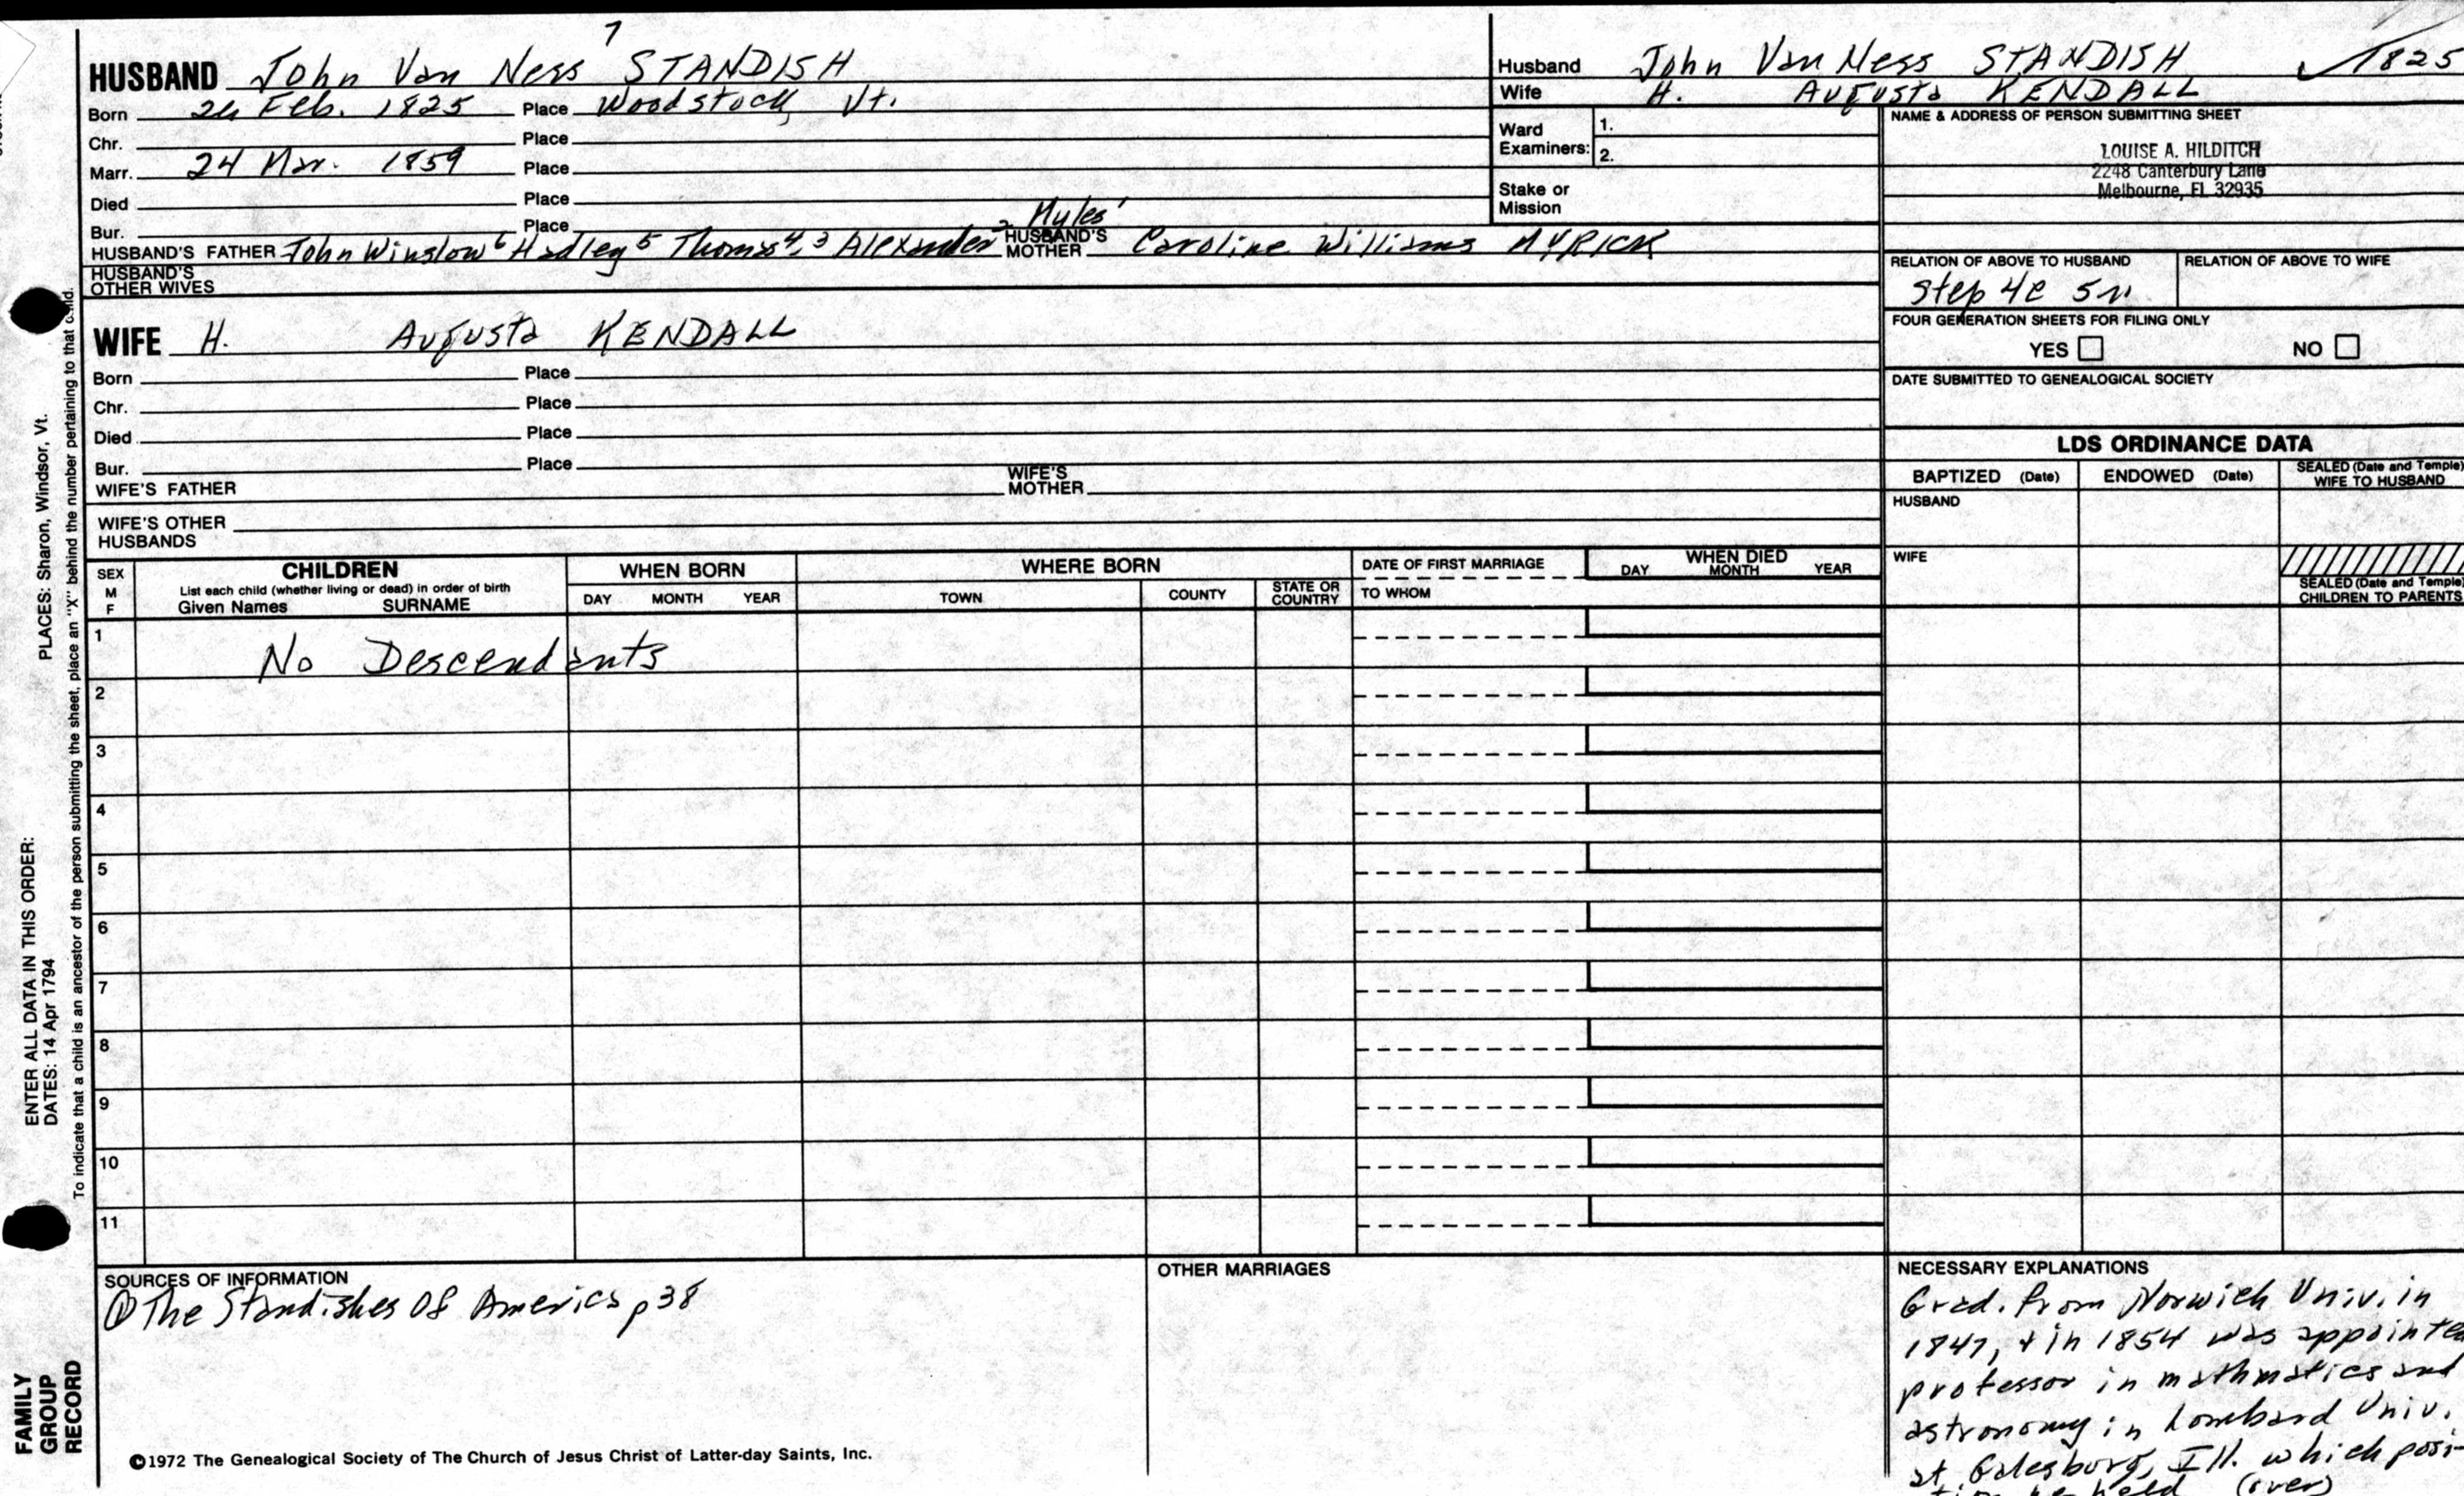 7
HUSBAND John Van Ness STANDISH
Born 26 Feb. 1825 Place Woodstock, Vt.
Chr. Place
Marr. 24 Mar. 1859 Place
Died Place
Bur. Place
Myles 1
HUSBAND'S FATHER John Winslow 6 Hadley 5 Thomas 4, 3 Alexander 2 HUSBAND'S MOTHER Caroline Williams MYRICK
HUSBAND'S OTHER WIVES
WIFE H. Augusta KENDALL
Born Place
Chr. Place
Died Place
Bur. Place
WIFE'S FATHER WIFE'S MOTHER
WIFE'S OTHER HUSBANDS
Husband John Van Ness STANDISH 1825
Wife H. Augusta KENDALL
Ward Examiners: 1.
2.
Stake or Mission
NAME & ADDRESS OF PERSON SUBMITTING SHEET
LOUISE A. HILDITCH
2248 Canterbury Lane
Melbourne, FL 32935
RELATION OF ABOVE TO HUSBAND RELATION OF ABOVE TO WIFE
step 4c 5r
FOUR GENERATION SHEETS FOR FILING ONLY
YES NO
DATE SUBMITTED TO GENEALOGICAL SOCIETY
LDS ORDINANCE DATA
BAPTIZED (Date) ENDOWED (Date) SEALED (Date and Temple) WIFE TO HUSBAND
HUSBAND
WIFE
SEALED (Date and Temple) CHILDREN TO PARENTS
SEX M F
CHILDREN
List each child (whether living or dead) in order of birth
Given Names SURNAME
WHEN BORN
DAY MONTH YEAR
WHERE BORN
TOWN COUNTY STATE OR COUNTRY
DATE OF FIRST MARRIAGE
TO WHOM
WHEN DIED
DAY MONTH YEAR
1 No Descendants
2
3
4
5
6
7
8
9
10
11
SOURCES OF INFORMATION
① The Standishes Of America p 38
OTHER MARRIAGES
NECESSARY EXPLANATIONS
Grad. from Norwich Univ. in
1847, + in 1854 was appointed
professor in mathmatics and
astronomy in Lombard Univ.
at Galesburg, Ill. which posi-
tion he held (over)
©1972 The Genealogical Society of The Church of Jesus Christ of Latter-day Saints, Inc.
PLACES: Sharon, Windsor, Vt.
ENTER ALL DATA IN THIS ORDER:
DATES: 14 Apr 1794
To indicate that a child is an ancestor of the person submitting the sheet, place an "X" behind the number pertaining to that child.
FAMILY
GROUP
RECORD